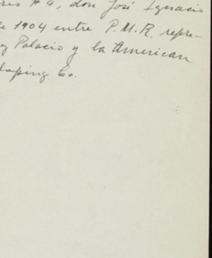 res # 4, don José Ignacio
de 1904 entre P.M.R. repre-
y Palacio y la American
loping Co.